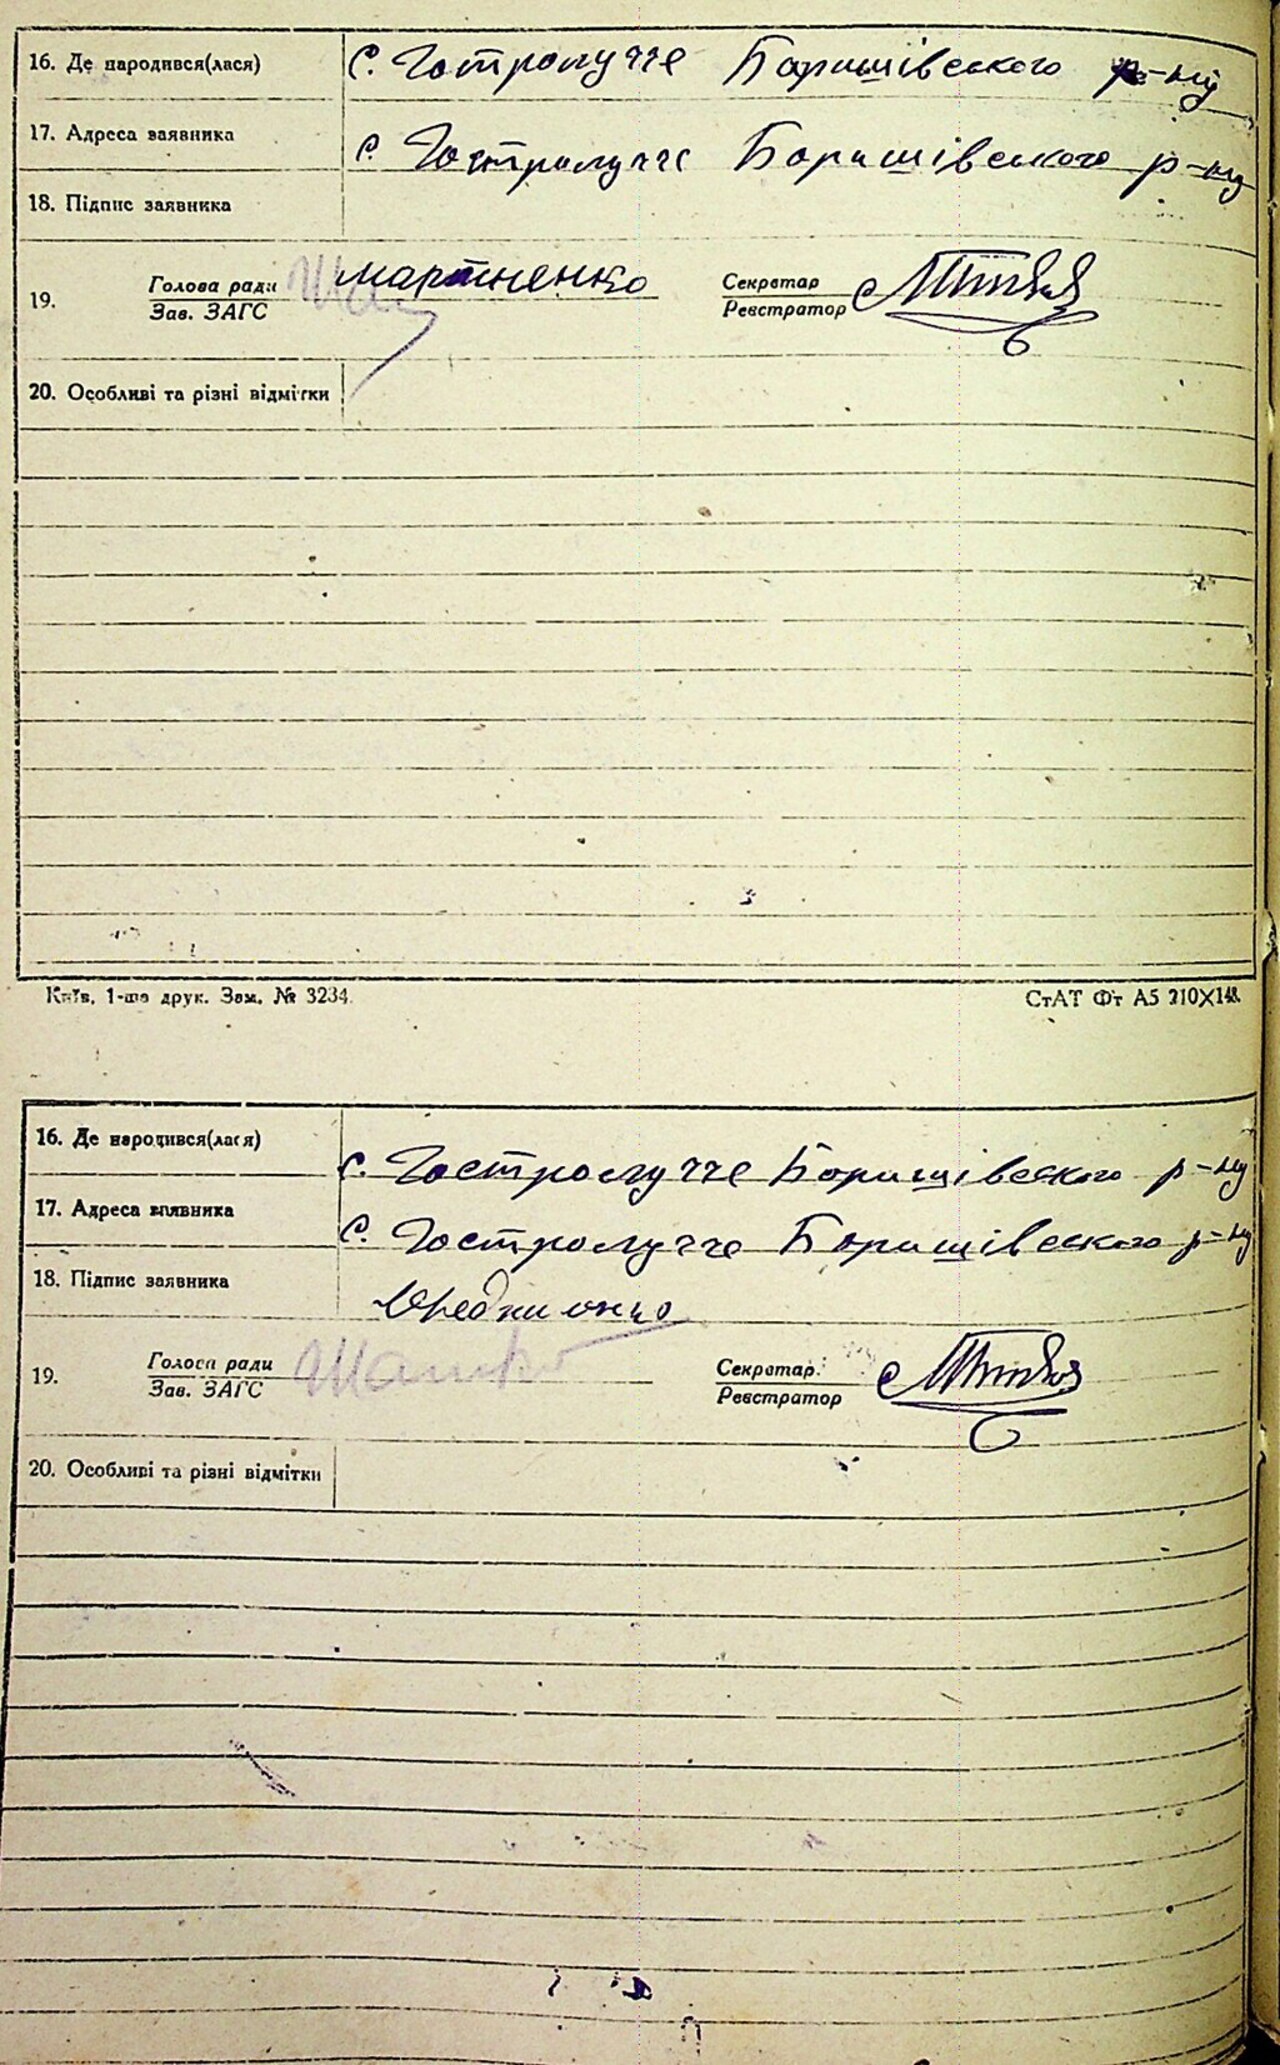 16. Де народився(лася) с. Гостролуччє Баришівського р-ну
17. Адреса заявника с. Гостролуччє Баришівського р-ну
18. Підпис заявника
19. Голова ради Мартиненко Секретар
Зав. ЗАГС Реєстратор
20. Особливі та різні відмітки
Київ, 1-ша друк. Зам. № 3234. СтАТ Фт А5 210X148.
16. Де народився(лася) с. Гостролуччє Баришівського р-ну
17. Адреса заявника с. Гостролуччє Баришівського р-ну
18. Підпис заявника
19. Голова ради Секретар
Зав. ЗАГС Реєстратор
20. Особливі та різні відмітки